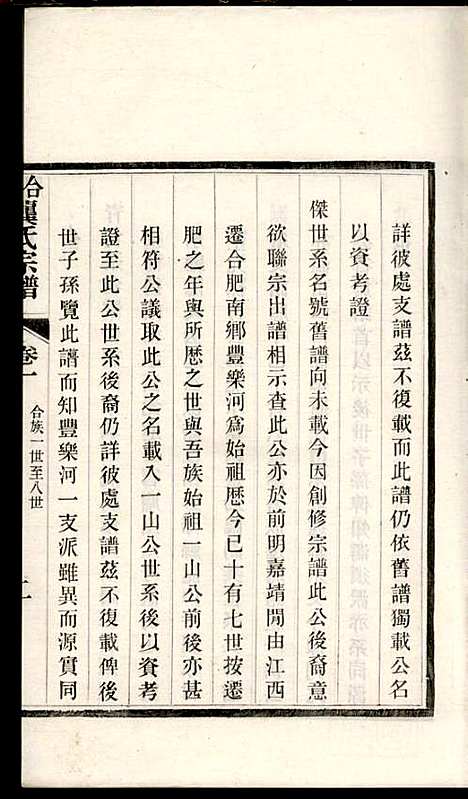 詳彼處支譜茲不復載而此譜仍依舊譜獨載公名
以資考證
傑世系名號舊譜向未載今因創修宗譜此公後裔意
欲聯宗出譜相示查此公亦於前明嘉靖閒由江西
遷合肥南鄉豐樂河爲始祖厯今已十有七世按遷
肥之年與所厯之世與吾族始祖一山公前後亦甚
相符公議取此公之名載入一山公世系後以資考
證至此公世系後裔仍詳彼處支譜茲不復載俾後
世子孫覽此譜而知豐樂河一支派雖異而源實同
龔氏宗譜
卷一
合族一世至八世